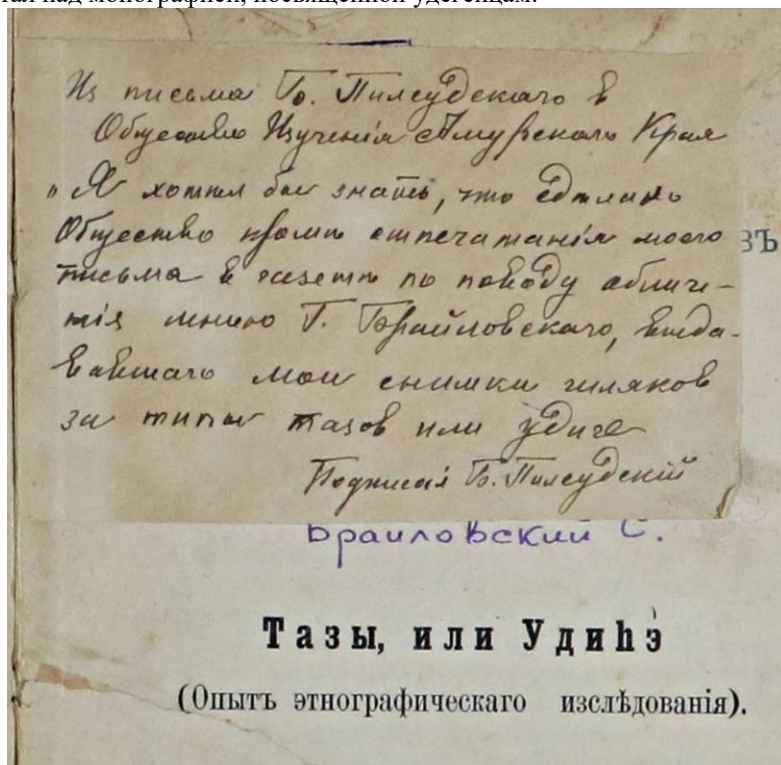 тал над монографией, посвященной удегейцам.
Из письма Б. Пилсудскаго в
Общество Изученія Амурскаго Края
„Я хотѣл бы знать, что сдѣлано
Обществом кромѣ отпечатанія моего
зъ
письма в газетѣ по поводу обличе-
нія мною Г. Брайловскаго, выда-
вавшаго мои снимки гиляков
за типы тазов или удихе
Подписал Б. Пилсудскій
Браиловский С.
Тазы, или Удиhэ
(Опытъ этнографическаго изслѣдованія).